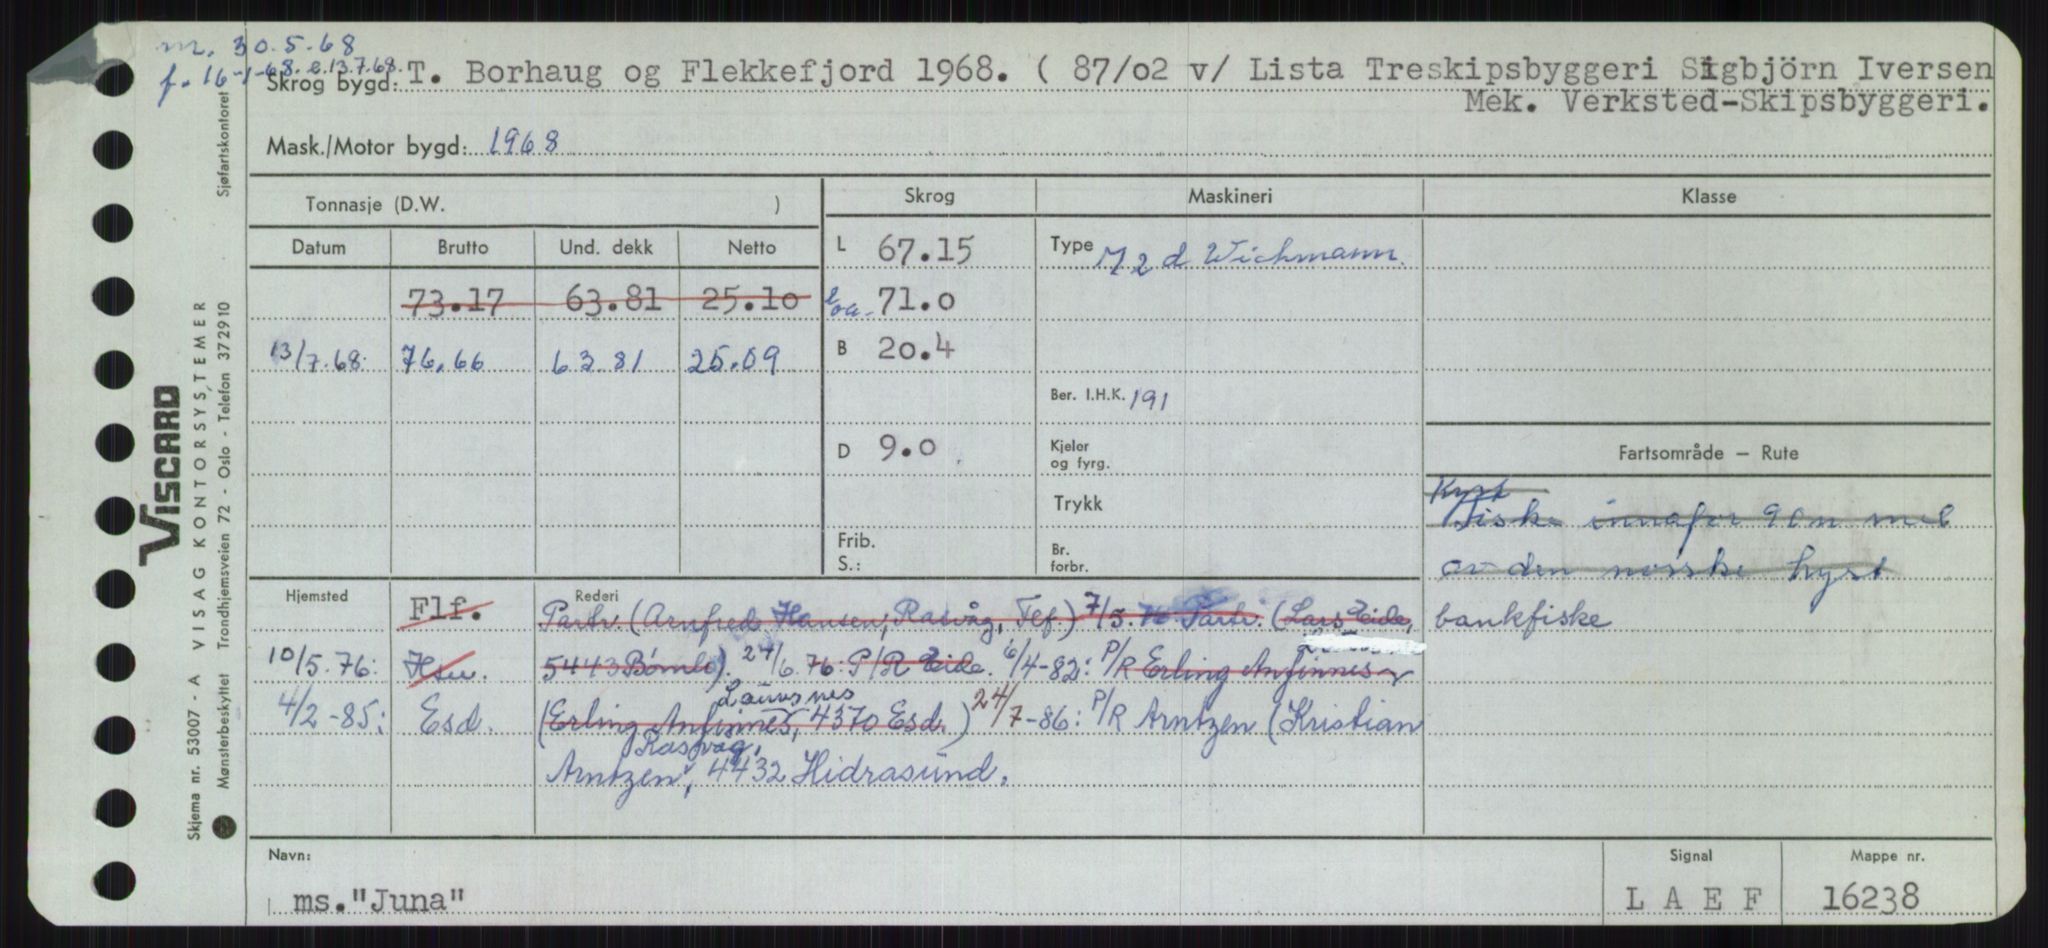 m. 30.5.68
f. 16-1-68. e. 13.7.68.
Skrog bygd: T. Borhaug og Flekkefjord 1968. ( 87/o2 v/ Lista Treskipsbyggeri Sigbjörn Iversen
Mek. Verksted-Skipsbyggeri.
Mask./Motor bygd: 1968
Tonnasje (D.W. )
Skrog
Maskineri
Klasse
Datum Brutto Und. dekk Netto
L 67.15
Type M 2 d Wichmann.
73.17 63.81 25.1o
loa. 71.o
13/7.68. 76.66 63.81 25.09
B 2o.4
Ber. I.H.K. 191
D 9.o
Kjeler
og fyrg.
Fartsområde – Rute
Trykk
Kyst
Fiske innafor 90 n mil
Frib.
S.:
Br.
forbr.
av den norske kyst
bankfiske
Hjemsted Rederi
Flf. Partr. (Arnfred Hansen, Rasvåg, Flf.) 7/5.76 Partr. (Lars Eide,
10/5.76: Hsu. 5443 Bømlo). 24/6.76: P/R Eide. 6/4-82: P/R Erling Anfinnes
Launsnes
4/2-85: Esd. (Erling Anfinnes, 4370 Esd.) 24/7-86: P/R Arntzen (Kristian
Rasvåg,
Arntzen, 4432 Hidrasund.
Navn:
ms."Juna"
Signal
L A E F
Mappe nr.
16238
VISCARD
Skjema nr. 53007 - A VISAG KONTORSYSTEMER
Mønsterbeskyttet Trondhjemsveien 72 - Oslo - Telefon 372910
Sjøfartskontoret